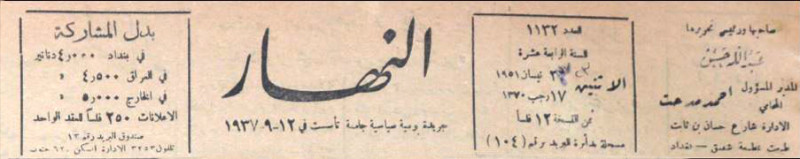 صاحبها ورئيس تحريرها
عبدالله حسن
المدير المسؤول احمد مدحت
المحامي
الادارة شارع حسان بن ثابت
طبعت بمطبعة شفيق — بغداد
العدد ١١٣٢
السنة الرابعة عشرة
الاثنين
نيسان ١٩٥١
١٧ رجب ١٣٧٠
ثمن النسخة ١٢ فلساً
مسجلة بدائرة البريد برقم (١٠٤)
النهار
جريدة يومية سياسية جامعة : تأسست في ١٢-٩-١٩٣٧
بدل المشاركة
في بغداد ٤٫٠٠٠ دنانير
في العراق ٤٫٥٠٠ »
في الخارج ٥٫٠٠٠ »
الاعلانات ٢٥٠ فلساً للعقد الواحد
صندوق البريد رقم ١٣
تلفون ٣٢٥٣ الادارة